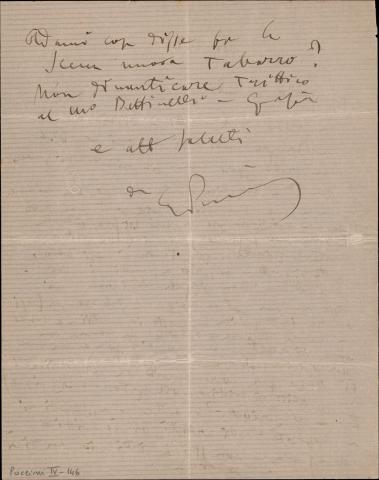 Adami cosa disse per la
Scena nuova Tabarro?
Non dimenticare Trittico
al mio Bettinelli - Grazie
e aff saluti
da GPuccini
Puccini IV-146